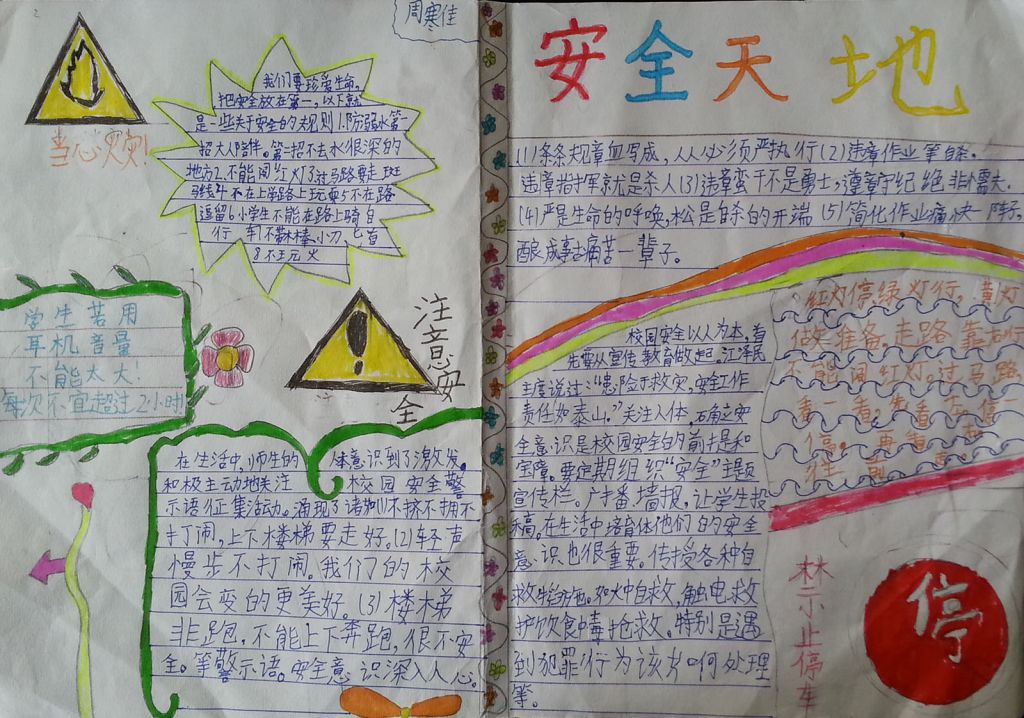 周寒佳
安全天地
当心火灾!
我们要珍爱生命,
把安全放在第一,以下就
是一些关于安全的规则1.防溺水第一
招大人陪伴。第二招不去水很深的
地方2.不能闯红灯3.过马路要走斑
马线4.不在上学路上玩耍5不在路
逗留6小学生不能在路上骑自
行车7不带木棒、小刀、匕首
8不玩火
学生若用
耳机音量
不能太大!
每次不宜超过2小时
注意安
全
在生活中,师生的 体意识到了激发。
和极主动地关注 校园安全警
示语征集活动。涌现了诸如(1)不挤不拥不
打闹,上下楼梯要走好。(2)轻声
慢步不打闹。我们的校
园会变的更美好。(3)楼梯
非跑,不能上下奔跑,很不安
全。等警示语。安全意识深入人心。
(1)条条规章血写成,人人必须严执行(2)违章作业等自杀。
违章指挥就是杀人(3)违章蛮干不是勇士,遵章守纪绝非懦夫.
(4)严是生命的呼唤,松是自杀的开端(5)简化作业痛快一阵子,
酿成事故痛苦一辈子。
校园安全以人为本,首
先要从宣传教育做起.江泽民
主席说过:“患险于救灾,安全工作
责任如泰山。”关注人体,确立安
全意识是校园安全的前提和
宝障。要定期组织“安全”主题
宣传栏。广播.墙报,让学生投
稿。在生活中培育体他们的安全
意识也很重要。传授各种自
救
火中自救,触电.救
护饮食中毒抢救。特别是遇
到犯罪行为该如何处理
等。
红灯停,绿灯行,黄灯
做准备,走路靠右行
不能闯红灯,过马路
看一看,
停。再
禁止停车
停